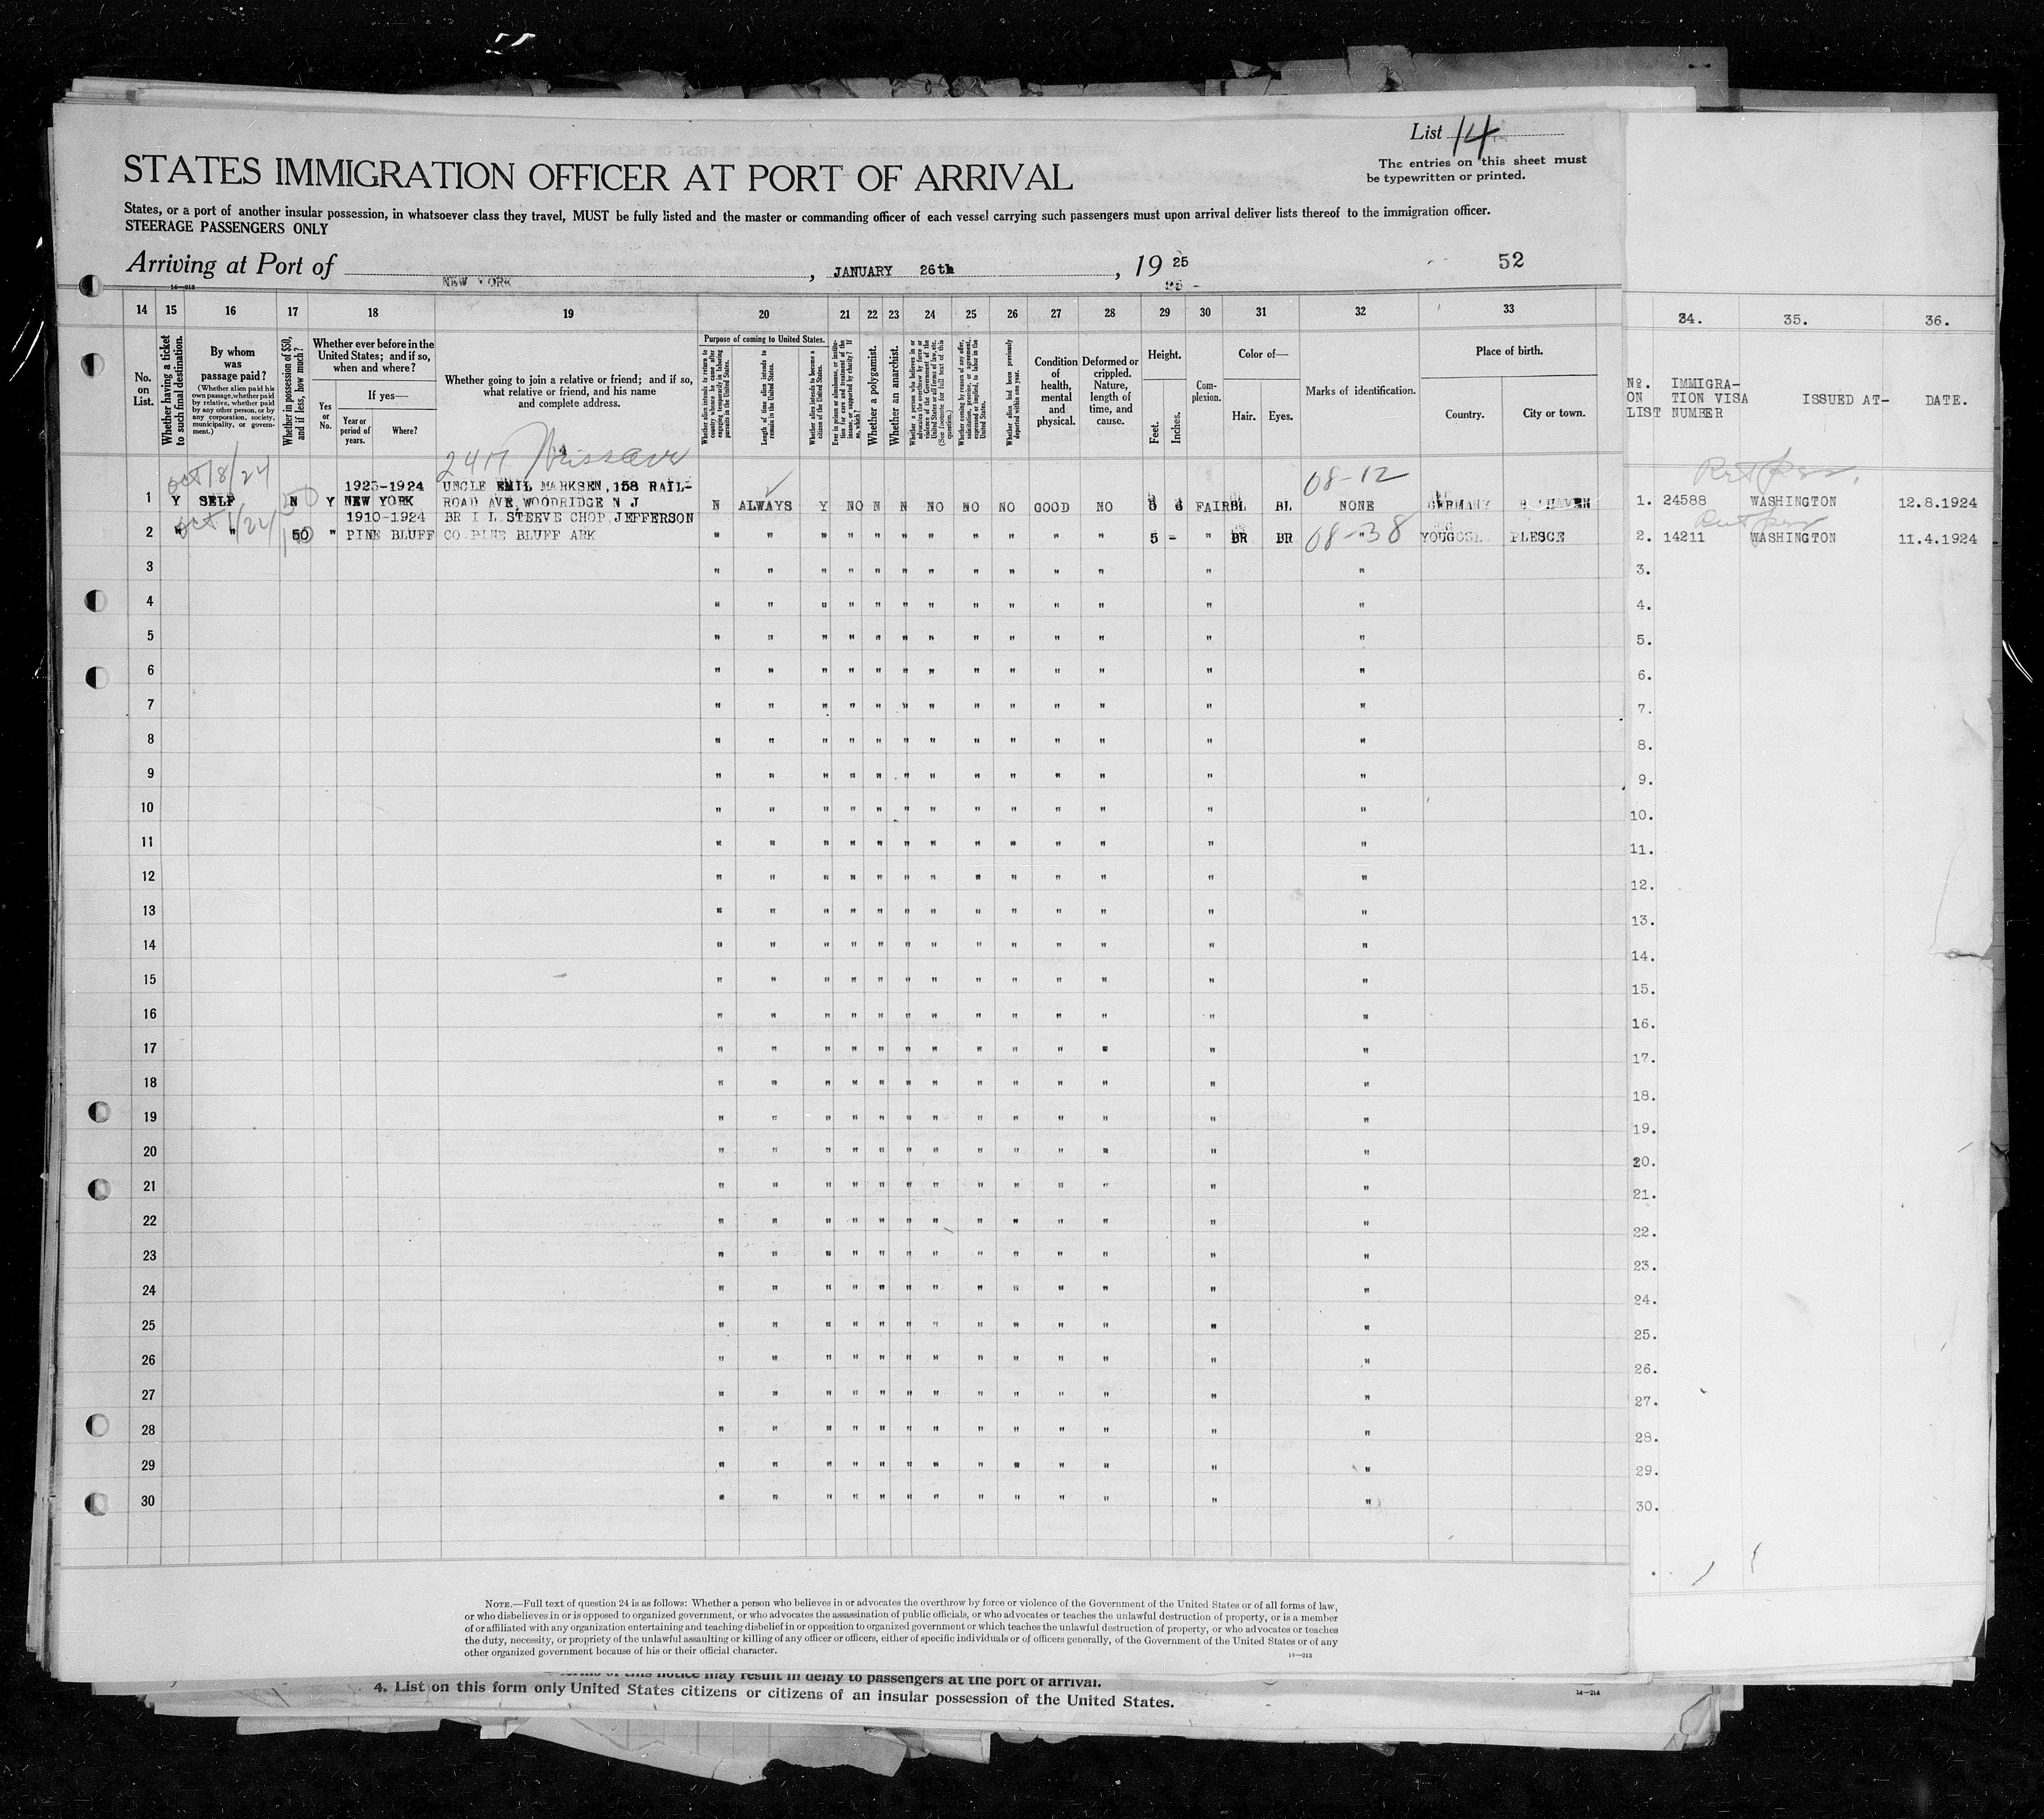 List 14
The entries on this sheet must
be typewritten or printed.
STATES IMMIGRATION OFFICER AT PORT OF ARRIVAL
States, or a port of another insular possession, in whatsoever class they travel, MUST be fully listed and the master or commanding officer of each vessel carrying such passengers must upon arrival deliver lists thereof to the immigration officer.
STEERAGE PASSENGERS ONLY
Arriving at Port of NEW YORK, JANUARY 26th, 19 25
52
14—213
14 15 16 17 18 19 20 21 22 23 24 25 26 27 28 29 30 31 32 33 34. 35. 36.
No. on List.
Whether having a ticket to such final destination.
By whom was passage paid?
(Whether alien paid his own passage, whether paid by relative, whether paid by any other person, or by any corporation, society, municipality, or government.)
Whether in possession of $50, and if less, how much?
Whether ever before in the United States; and if so, when and where?
Yes or No.
If yes—
Year or period of years.
Where?
Whether going to join a relative or friend; and if so, what relative or friend, and his name and complete address.
Purpose of coming to United States.
Whether alien intends to return to country whence he came after engaging temporarily in laboring pursuits in the United States.
Length of time alien intends to remain in the United States.
Whether alien intends to become a citizen of the United States.
Ever in prison or almshouse, or institution for care and treatment of the insane, or supported by charity? If so, which?
Whether a polygamist.
Whether an anarchist.
Whether a person who believes in or advocates the overthrow by force or violence of the Government of the United States or all forms of law, etc. (See footnote for full text of this question.)
Whether coming by reason of any offer, solicitation, promise, or agreement, expressed or implied, to labor in the United States.
Whether alien had been previously deported within one year.
Condition of health, mental and physical.
Deformed or crippled. Nature, length of time, and cause.
Height.
Feet.
Inches.
Complexion.
Color of—
Hair.
Eyes.
Marks of identification.
Place of birth.
Country.
City or town.
Nº. ON LIST
IMMIGRATION VISA NUMBER
ISSUED AT-
DATE.
Oct/8/24
08-12
1 Y SELF N 50 Y 1923-1924 NEW YORK UNCLE EMIL MARKSEN, 158 RAIL-
ROAD AVE, WOODRIDGE N J N ALWAYS Y NO N N NO NO NO GOOD NO 5 6 FAIR BL BL NONE GERMANY 1. 24588 WASHINGTON 12.8.1924
2 " " 50 " 1910-1924 PINE BLUFF BR I L STEEVE CHOP JEFFERSON
CO PINE BLUFF ARK " " " " " " " " " " " 5 - " BR BR " 08-38 YOUGOSL PLESCE 2. 14211 WASHINGTON 11.4.1924
3 " " " " " " " " " " " " " 3.
4 " " " " " " " " " " " " " 4.
5 " " " " " " " " " " " " " 5.
6 " " " " " " " " " " " " " 6.
7 " " " " " " " " " " " " " 7.
8 " " " " " " " " " " " " " 8.
9 " " " " " " " " " " " " " 9.
10 " " " " " " " " " " " " " 10.
11 " " " " " " " " " " " " " 11.
12 " " " " " " " " " " " " " 12.
13 " " " " " " " " " " " " " 13.
14 " " " " " " " " " " " " " 14.
15 " " " " " " " " " " " " " 15.
16 " " " " " " " " " " " " " 16.
17 " " " " " " " " " " " " " 17.
18 " " " " " " " " " " " " " 18.
19 " " " " " " " " " " " " " 19.
20 " " " " " " " " " " " " " 20.
21 " " " " " " " " " " " " " 21.
22 " " " " " " " " " " " " " 22.
23 " " " " " " " " " " " " " 23.
24 " " " " " " " " " " " " " 24.
25 " " " " " " " " " " " " " 25.
26 " " " " " " " " " " " " " 26.
27 " " " " " " " " " " " " " 27.
28 " " " " " " " " " " " " " 28.
29 " " " " " " " " " " " " " 29.
30 " " " " " " " " " " " " " 30.
NOTE.—Full text of question 24 is as follows: Whether a person who believes in or advocates the overthrow by force or violence of the Government of the United States or of all forms of law,
or who disbelieves in or is opposed to organized government, or who advocates the assassination of public officials, or who advocates or teaches the unlawful destruction of property, or is a member
of or affiliated with any organization entertaining and teaching disbelief in or opposition to organized government or which teaches the unlawful destruction of property, or who advocates or teaches
the duty, necessity, or propriety of the unlawful assaulting or killing of any officer or officers, either of specific individuals or of officers generally, of the Government of the United States or of any
other organized government because of his or their official character.
14—213
terms of this notice may result in delay to passengers at the port of arrival.
4. List on this form only United States citizens or citizens of an insular possession of the United States.
14—214